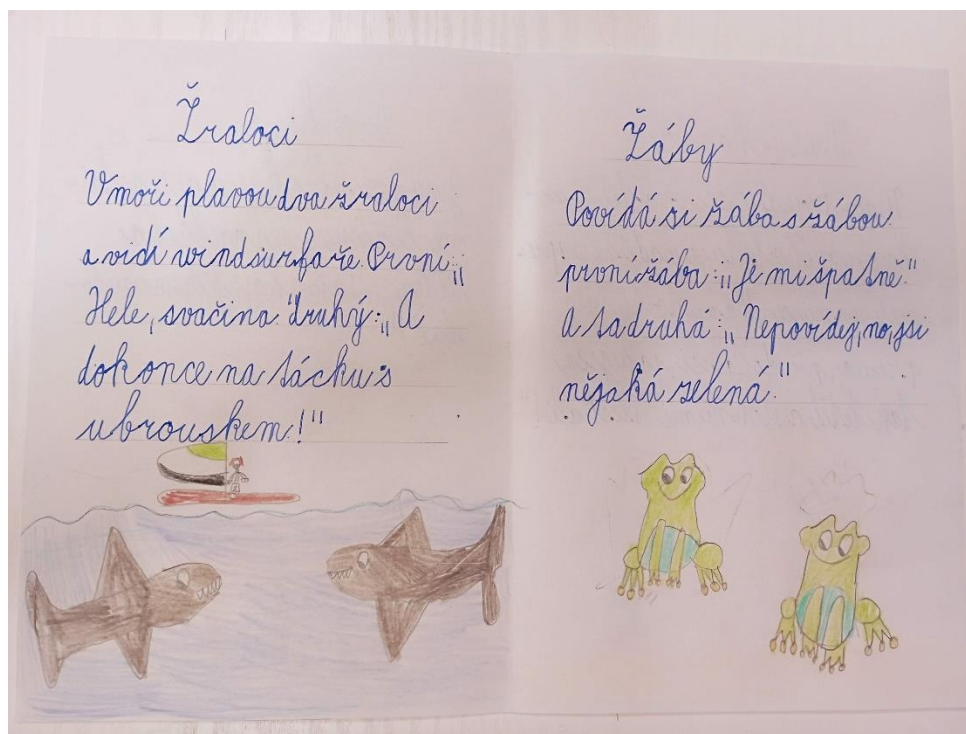 Žraloci
V moři plavou dva žraloci
a vidí windsurfaře. První „
Hele, svačina." Druhý: „ A
dokonce na tácku s
ubrouskem!"
Žáby
Povídá si žába s žábou.
první žába: „ Je mi špatně."
A ta druhá: „ Nepovídej, no, jsi
nějaká zelená."